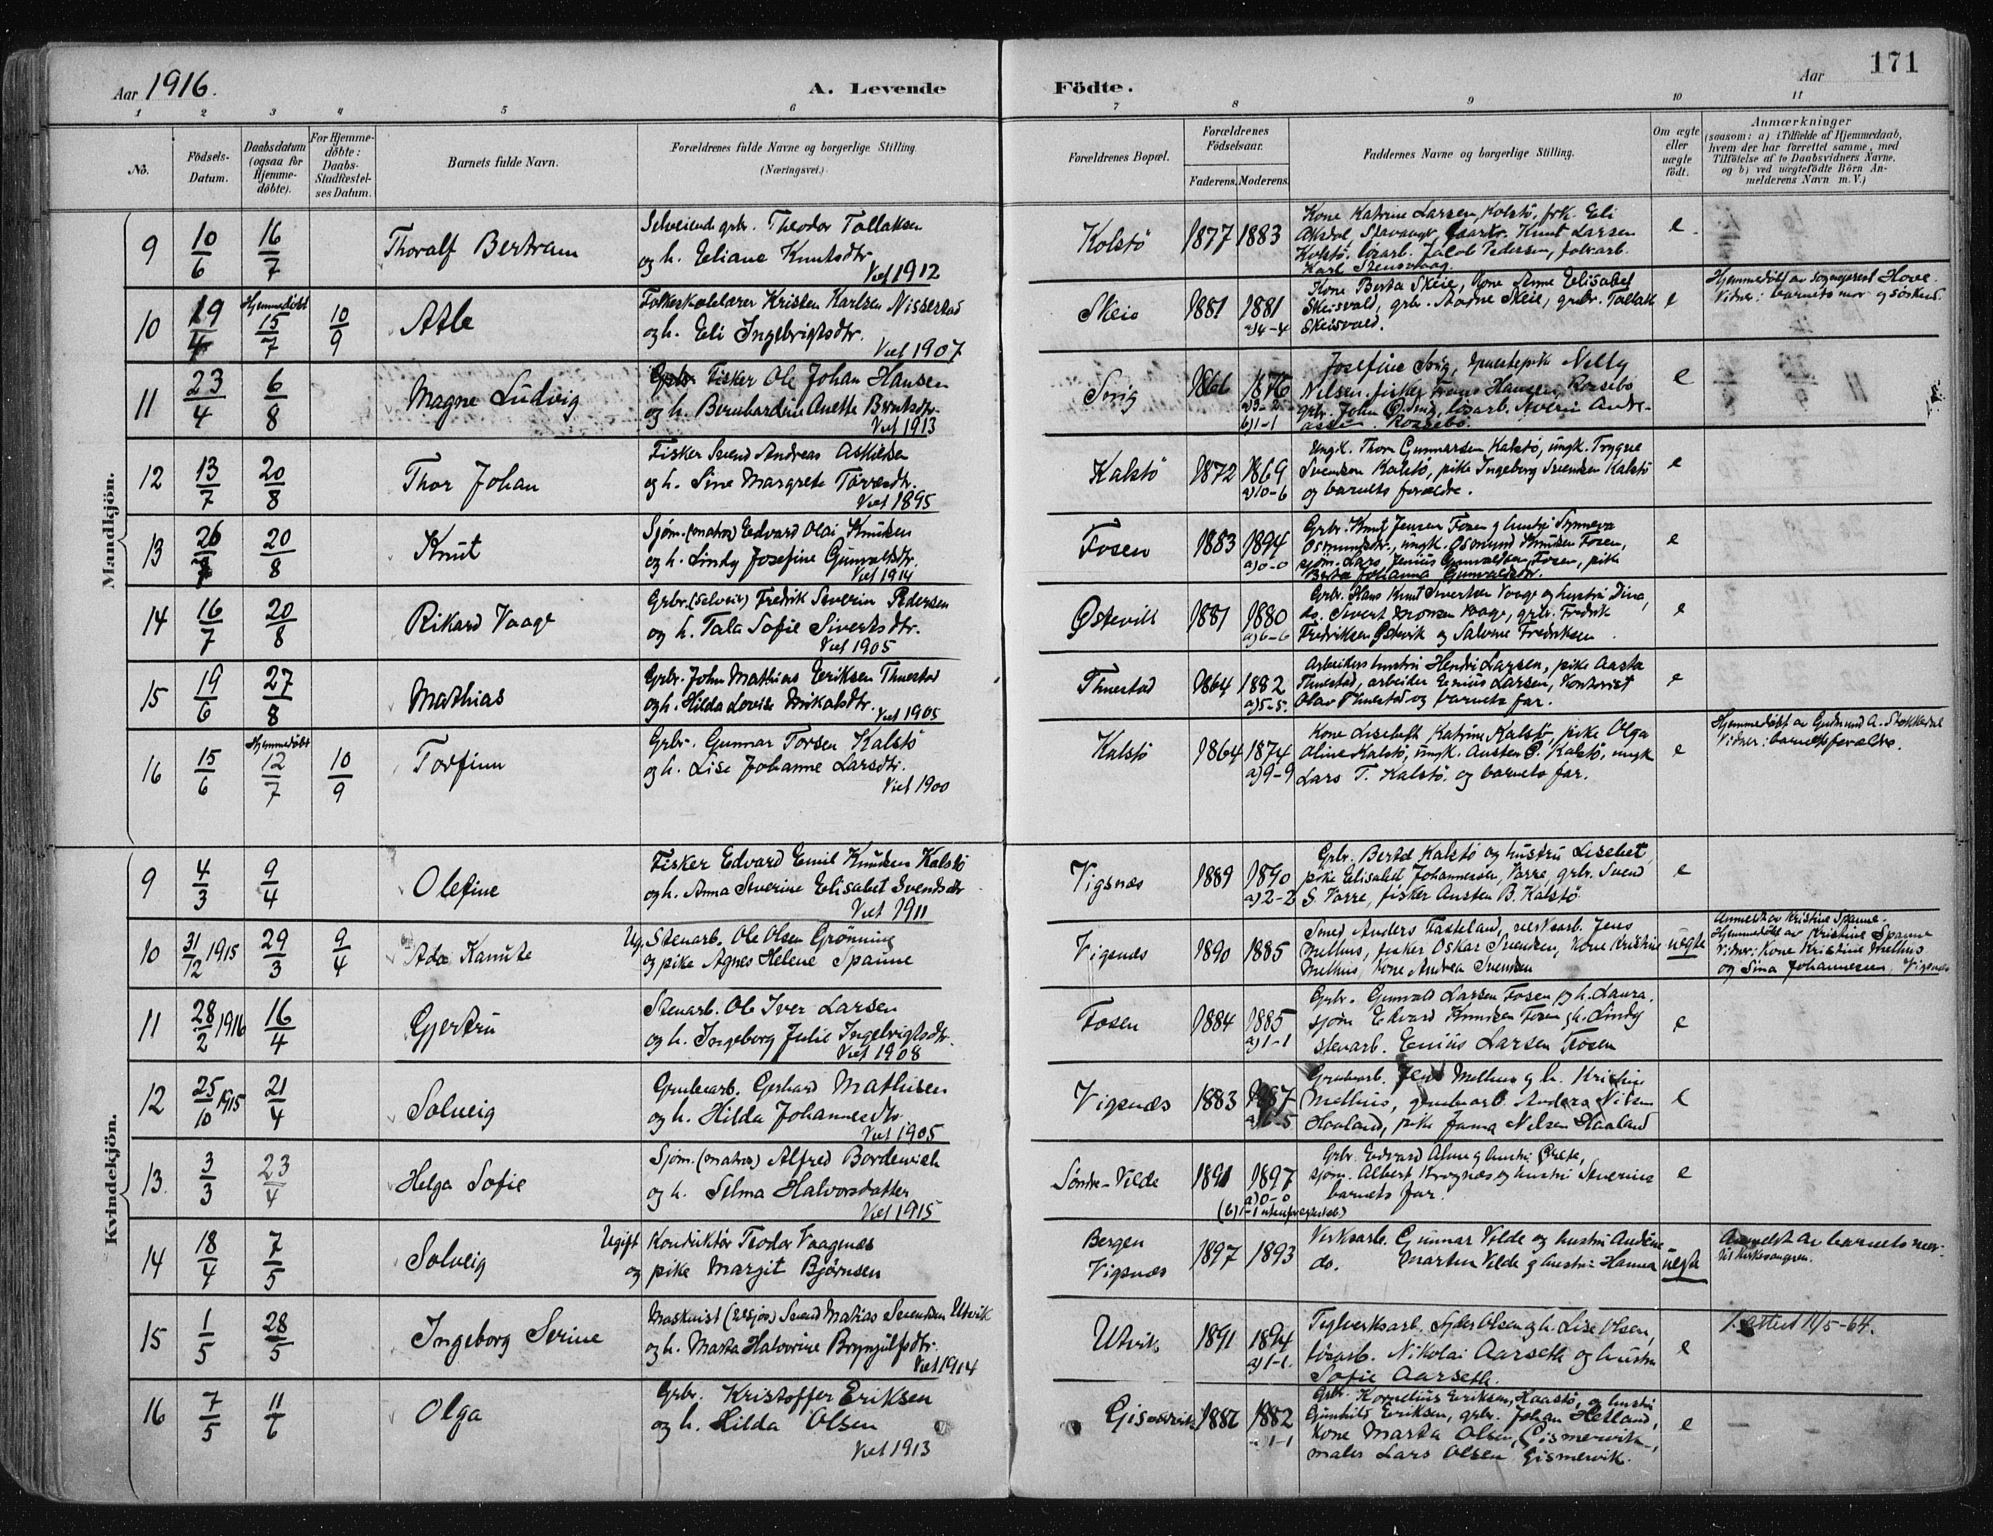 Aar 1916.
A. Levende
Födte.
Aar
171
1 2 3 4 5 6 7 8 9 10 11
No.
Födsels-
Datum.
Daabsdatum
(ogsaa for
Hjemme-
döbte).
For Hjemme-
döbte:
Daabs-
Stadfæstel-
ses Datum.
Barnets fulde Navn.
Forældrenes fulde Navne og borgerlige Stilling.
(Næringsvei.)
Forældrenes Bopæl.
Forældrenes
Födselsaar.
Faderens. Moderens.
Faddernes Navne og borgerlige Stilling.
Om ægte
eller
uægte
födt.
Anmærkninger
(saasom: a) i Tilfælde af Hjemmedaab,
hvem der har forrettet samme, med
Tilföielse af to Daabsvidners Navne,
og b) ved uægtefödte Börn An-
melderens Navn m. V.)
Mandkjön.
9 10/6 16/7 Thoralf Bertram
Selveiende grbr. Theodor Tollaksen
og h. Eliane Knutsdtr.
Viet 1912
Kolstö 1877 1883
Kone Katrine Larsen, Kolstö, frk. Eli
Aksdal Stavanger, Knut Larsen
Kolstö, lösarb. Jakob Pedersen,
Karl Stensvaag.
e.
10 19/4 Hjemmedöbt 15/7 10/9 Atle
Folkeskolelærer Kristen Karlsen Nisserstad
og h. Eli Ingebrigtsdtr.
Viet 1907
Skeie 1881 1881
a) 4-4
Kone Berta Skeie, Kone Anne Elisabet
Skeisvald, grbr. Skeie, grbr. Tollak
Skeisvald.
e
Hjemmedöbt av sogneprest Hove.
Vidner: barnets mor og söskend
11 23/4 6/8 Magne Ludvig
Fisker Ole Johan Hansen
og h. Bernhardine Anette Berntsdtr.
Viet 1913
1876
b) 1-1
Josefine Nelly
Nilsen, fisker Hansen, Korsebö
grbr. John lösarb. Andre-
e
12 13/7 20/8 Thor Johan
Fisker Svend Andreas Askildsen
og h. Sine Margrete Toresdtr.
Viet 1895
Kalstö 1872 1869
a) 10-6
Ungk. Thor Gunnarsen Kalstö, ungk. Trygve
Svendsen Kalstö, pike Ingeborg Svendsen Kalstö
og barnets forældre.
e
13 26/7 20/8 Knut
Sjöm. (matros) Edvard Olai Knutsen
og h. Lindy Josefine Gunvaldsdtr.
Viet 1914
Fosen 1883 1894
a) 0-0
Grbr. Knut Jensen Fosen g hustru Synneva
Osmundsdtr., ungk. Osmund Knutsen Fosen,
sjöm. Lars Jenius Gunvaldsen Fosen, pike
Berta Johanna Gunvaldsdtr.
e
14 16/7 20/8 Rikard Vaage
Grbr. (selveier) Fredrik Severin Pedersen
og h. Tala Sofie Sivertsdtr.
Viet 1905
1881 1880
a) 6-6
Grbr. Hans Knut Sivertsen Vaage og hustru Dina,
ds. Sivert Vaage, grbr. Fredrik
Fredriksen Östevik og Salome Fredriksen
e
15 19/6 27/8 Mathias
Grbr. John Mathias Eriksen Thuestad
og h. Hilda Lovise Mikalsdtr.
Viet 1905
Thuestad 1864 1882
a) 5-5.
Arbeiders hustru Hendri Larsen, pike Aasta
Thuestad, arbeider Enius Larsen, Kontorist
Olav Thuestad og barnets far.
e
16 15/6 Hjemmedöbt 12/7 10/9 Torfinn
Grbr. Gunnar Torsen Kalstö
og h. Lise Johanne Larsdtr.
Viet 1900
Kalstö 1864 1874
a) 9-9
Kone Liselath Katrine Kalstö, pike Olga
Oline Kalstö, ungk. Austen P. Kalstö, ungk
Lars T. Kalstö, og barnets far.
e
Hjemmedöbt av Gudmund A. Stokkedal
Vidner: barnets forældre.
Kvindekjön.
9 4/3 9/4 Olefine
Fisker Edvard Emil Knudsen Kalstö
og h. Anna Severine Elisabet Svendsdtr
Viet 1911
Vigsnæs 1889 1890
a) 2-2
Grbr. Bertel Kalstö og hustru Lisebet,
pike Elisabet Johannesen, Varre, grbr. Svend
S. Varre, fisker Austen B. Kalstö
e
10 31/12 1915 29/3 9/4 Ada Kanute
Ug. Stenarb. Ole Olsen Grönning
og pike Agnes Helene Spanne
Vigsnæs 1890 1885
Smed Anders Fasteland, verksarb. Jens
Melhus, fisker Oskar Svendsen, Kone Kristine
Melhus, Kone Andrea Svendsen
uegte
Anmeldt av Kristine Spanne.
Hjemmedöbt av Kristine Spanne
Vidner: Kone Kristine Melhus
og Sina Johannesen, Vigsnæs
11 28/2 1916 16/4 Gjertru
Stenarb. Ole Iver Larsen
og h. Ingeborg Julie Ingebrigtsdtr.
Viet 1908
Fosen 1884 1885
a) 1-1
Grbr. Gunvald Larsen Fosen g h. Laura.
sjöm Edvard Knutsen Fosen g h. Lindy
stenarb. Enius Larsen Fosen
e
12 25/10 1915 21/4 Solveig
Grubearb. Gerhard Mathisen
og h. Hilda Johannesdtr.
Viet 1905
Vigsnæs 1883
Grubearb. Jens Melhus g h. Kristine
Melhus, grubearb. Anders Nilsen
Haaland, pike Janna Nilsen Haaland
e
13 3/3 23/4 Helga Sofie
Sjöm. (matros) Alfred Bordewich
og h. Selma Halvorsdatter
Viet 1915
Söndre-Vilde 1891 1897
a) 0-0
Grbr. Edvard g hustru
sjöm. Albert og hustru Severine
barnets far.
e
14 18/4 7/5 Solveig
Ugift Konduktör Teodor Vaagenæs
og pike Margit Björnsen
Bergen
Vigsnæs
1897 1893
Verksarb. Gunnar Vilde og hustru Andine
ds. Martin Vilde g hustru Hanna
uegte
Anmeldt av barnets mor
til kirkesangeren.
15 1/5 28/5 Ingeborg Serine
Maskinist Svend Matias Svendsen Utvik
og h. Marta Halvorine Brynjulfsdtr.
Viet 1914
Utvik 1891 1894
a) 1-1.
Teglverksarb. Olsen og h. Lise Olsen,
lösarb. Nikolai Aarseth og hustru
Sofie Aarseth.
e
attest 11/5-64.
16 7/5 11/6 Olga
Grbr. Kristoffer Eriksen
og h. Hilda Olsen
Viet 1913
1882
1-1
Grbr. Kornelius Eriksen, Haastö, og hustru
Gunhild Eriksen, grbr. Johan Hetland,
Kone Marta Olsen, Gismervik,
maler Lars Olsen Gismervik.
e